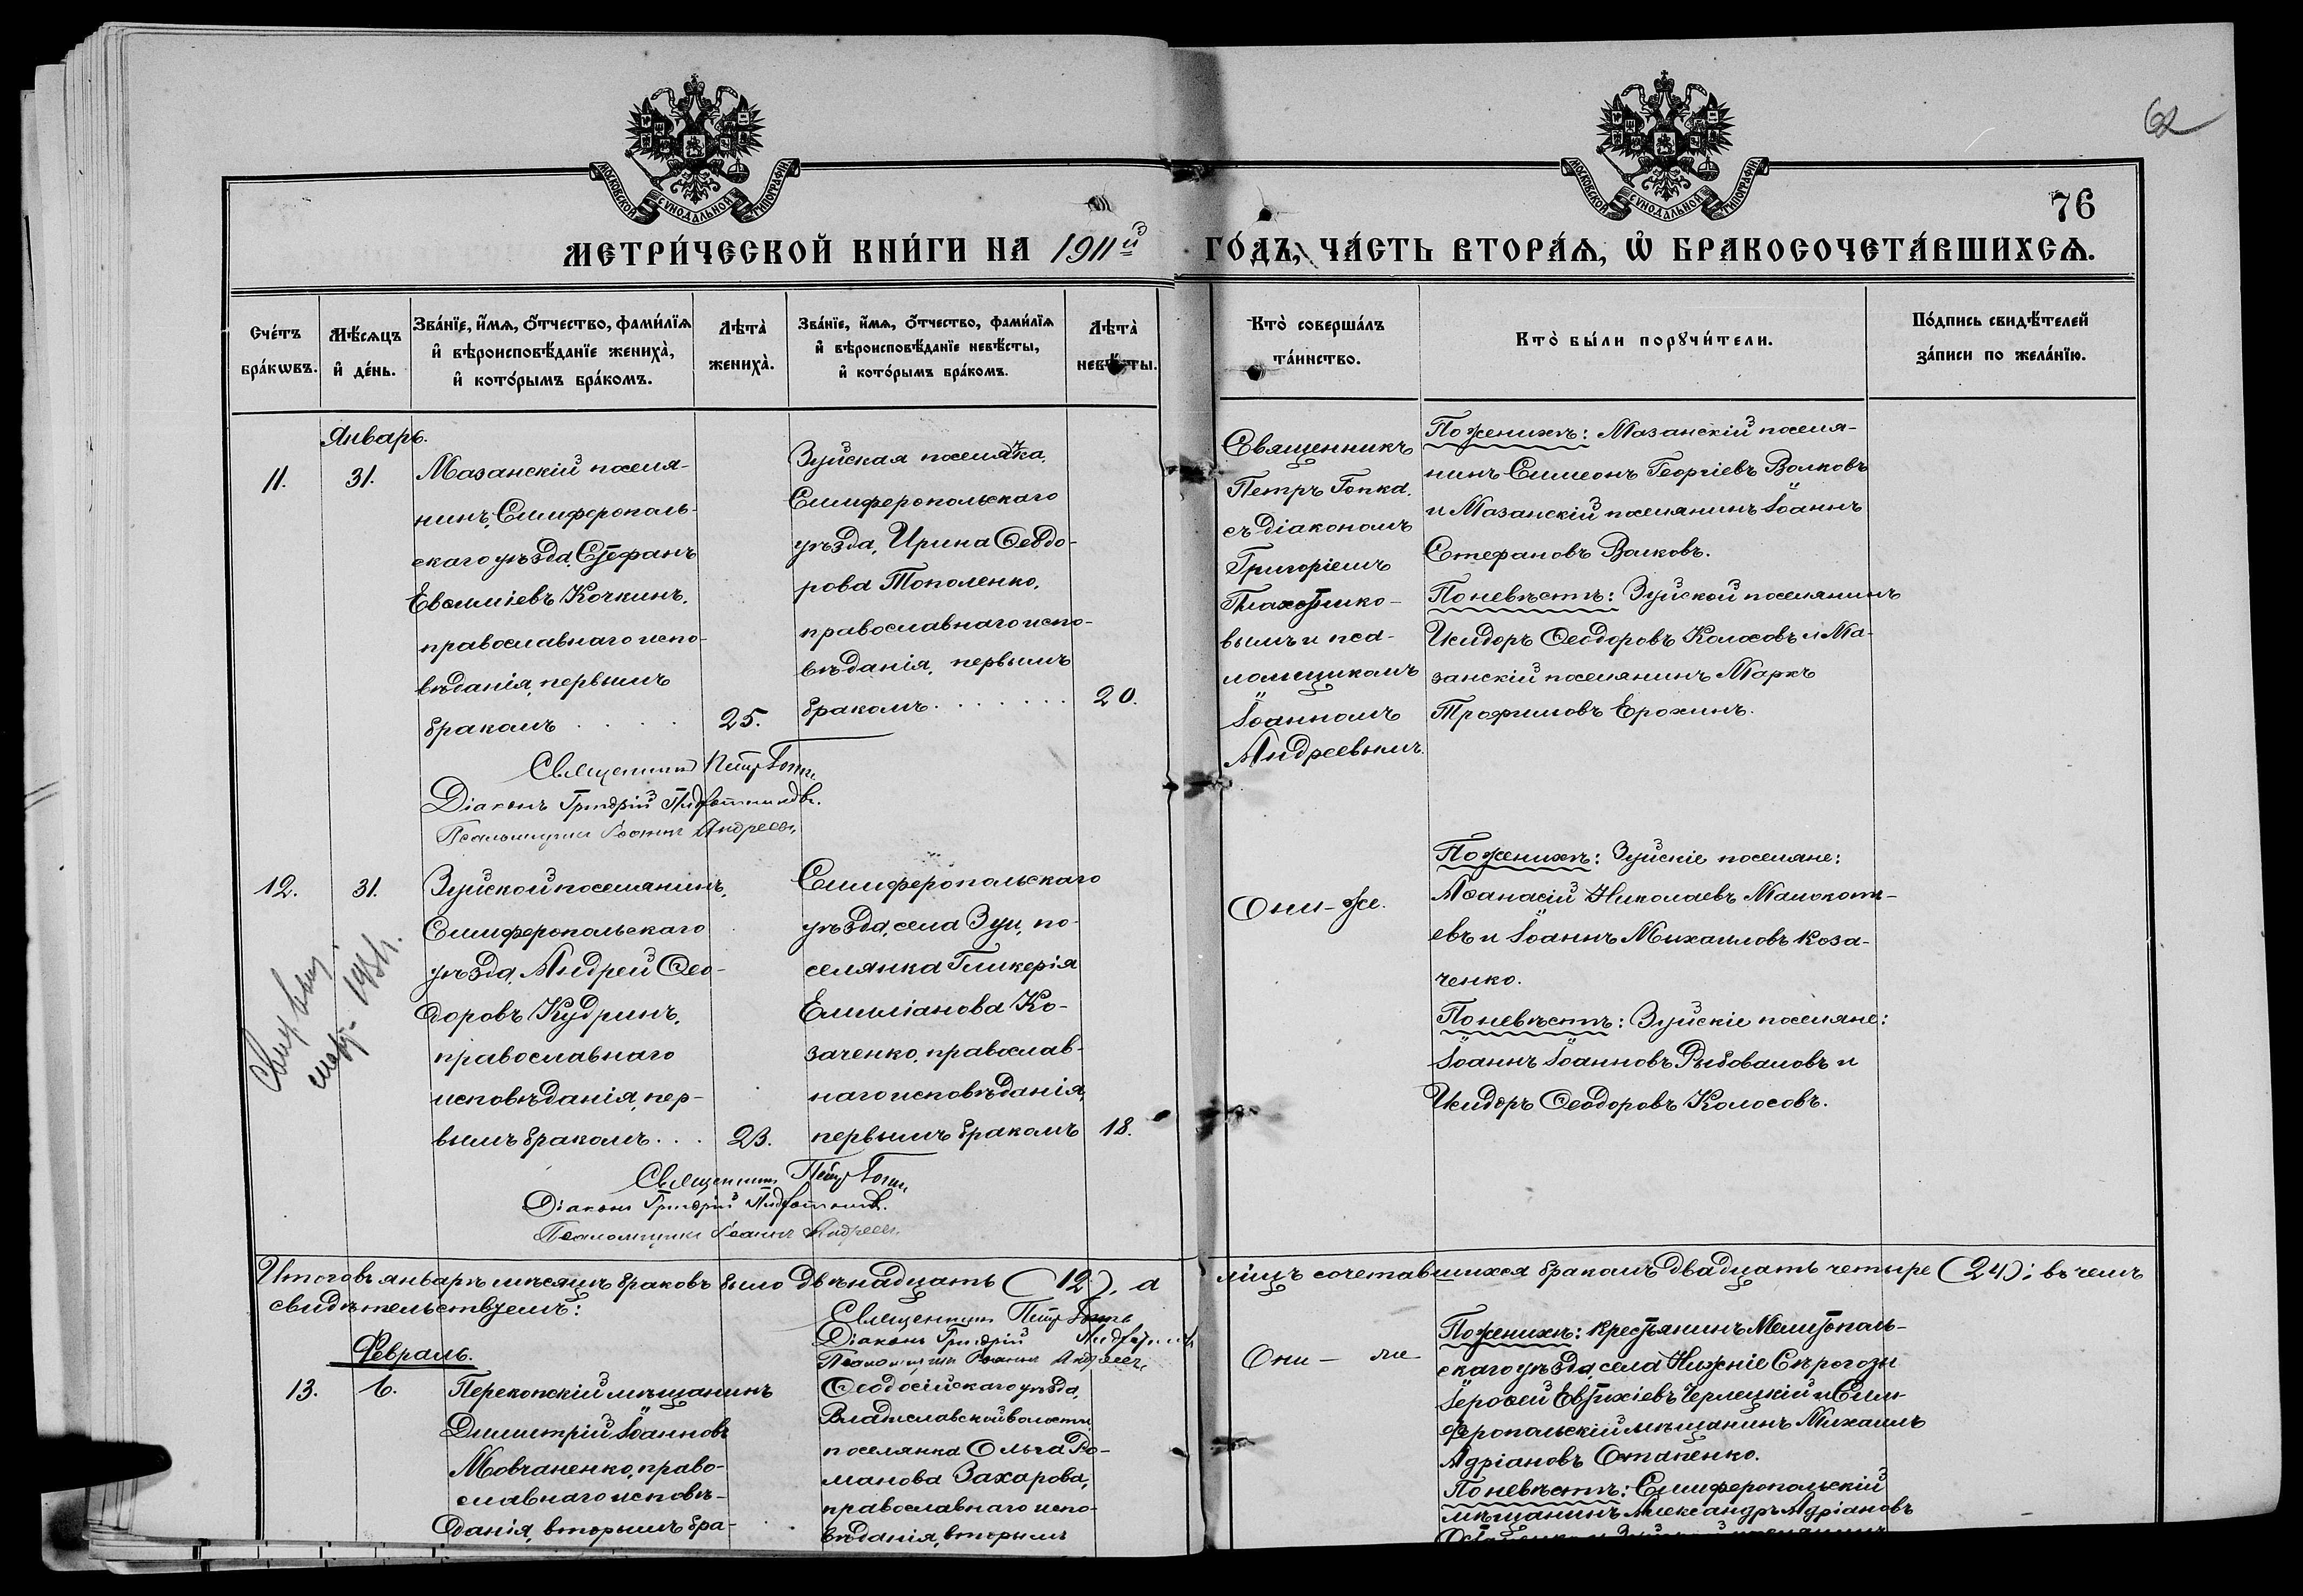 62
76
МОСКОВСКОЙ СѴНОДАЛЬНОЙ ТИПОГРАФІИ
МОСКОВСКОЙ СѴНОДАЛЬНОЙ ТИПОГРАФІИ
МЕТРИ́ЧЕСКОЙ КНИ́ГИ НА 1911й ГО́ДЪ, ЧА́СТЬ ВТОРА́Ѧ, Ѡ҆ БРАКОСОЧЕТА́ВШИХСѦ.
Сче́тъ
бра́кѡвъ.
Мѣ́сѧцъ
и҆ де́нь.
Зва́нїе, и҆́мѧ, о҆́тчество, фами́лїѧ
и҆ вѣроисповѣ́данїе жениха̀,
и҆ кото́рымъ бра́комъ.
Лѣта̀
жениха̀.
Зва́нїе, и҆́мѧ, о҆́тчество, фами́лїѧ
и҆ вѣроисповѣ́данїе невѣ́сты,
и҆ кото́рымъ бра́комъ.
Лѣта̀
невѣ́сты.
Кто̀ соверша́лъ
та́инство.
Кто̀ бы́ли порꙋчи́тели.
По́дпись свидѣ́телей
за́писи по жела́нїю.
Январь.
11.
31.
Мазанскій поселя-
нинъ, Симферополь-
скаго уѣзда, Стефанъ
Евсиміевъ Кочкинъ,
православнаго испо-
вѣданія, первымъ
бракомъ . . . .
25.
Зуйская поселянка,
Симферопольскаго
уѣзда, Ирина Ѳеодо-
рова Тополенко,
православнаго испо-
вѣданія, первымъ
бракомъ . . . . . . .
20.
Священникъ
Петръ Гопка.
съ діакономъ
Григоріемъ
вымъ и пса-
ломщикомъ
Іоанномъ
Андреевымъ.
По женихѣ: Мазанскій поселя-
нинъ Симеонъ Георгіевъ Волковъ
и Мазанскій поселянинъ Іоаннъ
Стефановъ Волковъ.
По невѣстѣ: Зуйской поселянинъ
Исидоръ Ѳеодоровъ Колосовъ и Ма-
занскій поселянинъ Маркъ
Трофимовъ Ерохинъ.
Священникъ Петръ Гопка
Діаконъ Григорій
Псаломщикъ Іоаннъ Андреевъ
12.
31.
Зуйской поселянинъ,
Симферопольскаго
уѣзда, Андрей Ѳео-
доровъ Кудринъ,
православнаго
исповѣданія, пер-
вымъ бракомъ . . .
23.
Симферопольскаго
уѣзда, села Зуи, по-
селянка Гликерія
Емиліанова Ко-
заченко, православ-
наго исповѣданія,
первымъ бракомъ
18.
Они-же.
По женихѣ: Зуйскіе поселяне:
Аѳанасій Николаевъ Малокотт-
евъ и Іоаннъ Михаиловъ Коза-
ченко.
По невѣстѣ: Зуйскіе поселяне:
Іоаннъ Іоанновъ Рыбоваловъ и
Исидоръ Ѳеодоровъ Колосовъ.
Священникъ Петръ Гопка
Діаконъ Григорій
Псаломщикъ Іоаннъ Андреевъ
Итого въ январѣ мѣсяцѣ браковъ было двѣнадцать (12), а лицъ сочетавшихся бракомъ двадцать четыре (24); въ чемъ
свидѣтельствуемъ:
Священникъ Петръ Гопка
Діаконъ Григорій
Псаломщикъ Іоаннъ Андреевъ
Февраль.
13.
6.
Перекопскій мѣщанинъ
Димитрій Іоанновъ
Мовчаненко, право-
славнаго исповѣ-
данія, вторымъ бра-
Ѳеодосійскаго уѣзда,
Владиславской волости
поселянка Ольга Ро-
манова Захарова,
православнаго испо-
вѣданія, вторымъ
Они - же
По женихѣ: Крестьянинъ Мелитополь-
скаго уѣзда, села Нижніе Сѣрогозы
Іероѳей Евтихіевъ Черлецкій и Сим-
феропольскій мѣщанинъ Михаилъ
Адріановъ Остапенко.
По невѣстѣ: Симферопольскій
мѣщанинъ Александръ Адріановъ